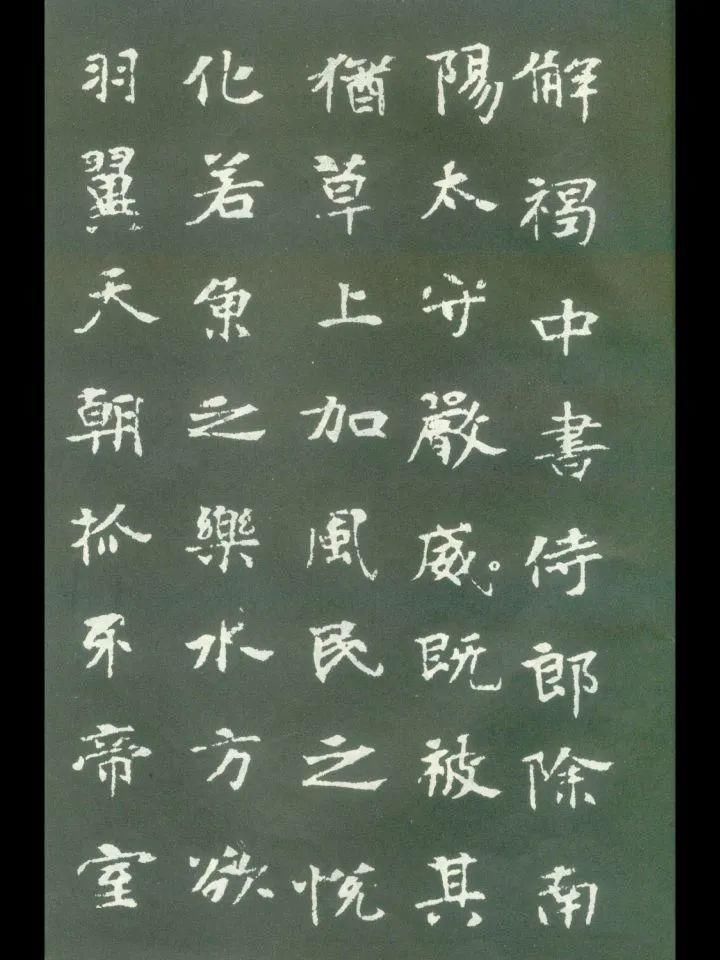 懈褐中書侍郎除南
陽太守嚴威既被其
猶草上加風民之悅
化若魚之樂水方欲
羽翼天朝抓牙帝室